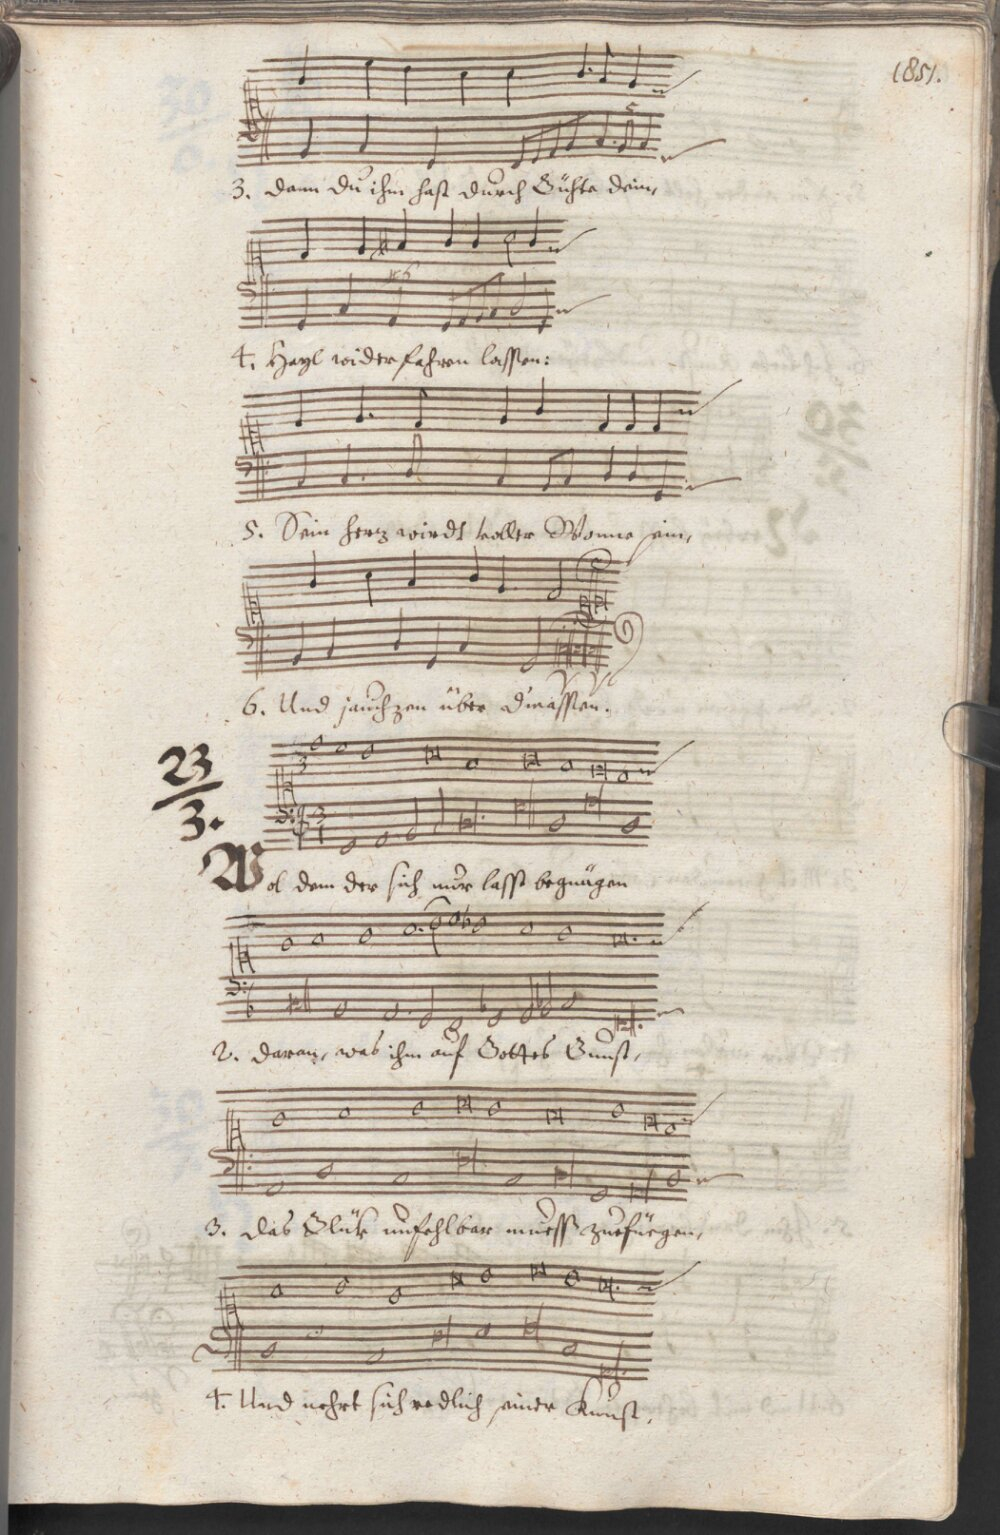 (851.
3. dann du ihm hast durch Gühte dein,
4. Heyl widerfahren lassen:
5. Sein hertz wirdt voller Wonne sein,
6. Und jauchzen über dmassen.
23/3.
Wol dem der sich nur lasst begnügen
2. daran, was ihm auf Gottes Gunst,
3. das Glük unfehlbar muess zuefüegen,
4. Und nehrt sich redlich seiner Kunst,